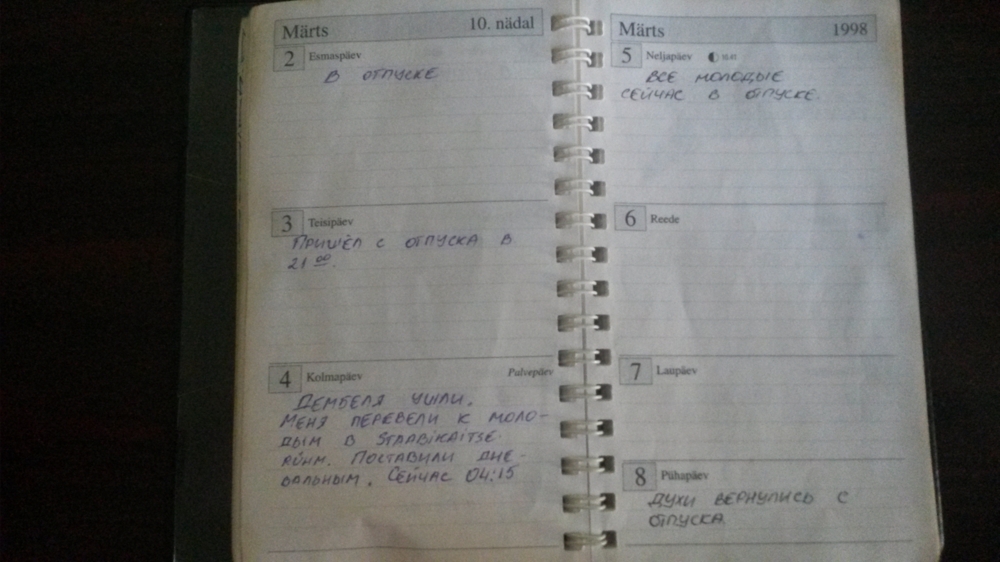 Märts 10. nädal
2 Esmaspäev
В ОТПУСКЕ
3 Teisipäev
ПРИШЁЛ С ОТПУСКА В
21 00.
4 Kolmapäev Palvepäev
ДЕМБЕЛЯ УШЛИ.
МЕНЯ ПЕРЕВЕЛИ К МОЛО-
ДЫМ В STAABIKAITSE
RÜHM. ПОСТАВИЛИ ДНЕ-
ВАЛЬНЫМ. СЕЙЧАС 04:15
Märts 1998
5 Neljapäev
ВСЕ МОЛОДЫЕ
СЕЙЧАС В ОТПУСКЕ.
6 Reede
7 Laupäev
8 Pühapäev
ДУХИ ВЕРНУЛИСЬ С
ОТПУСКА.